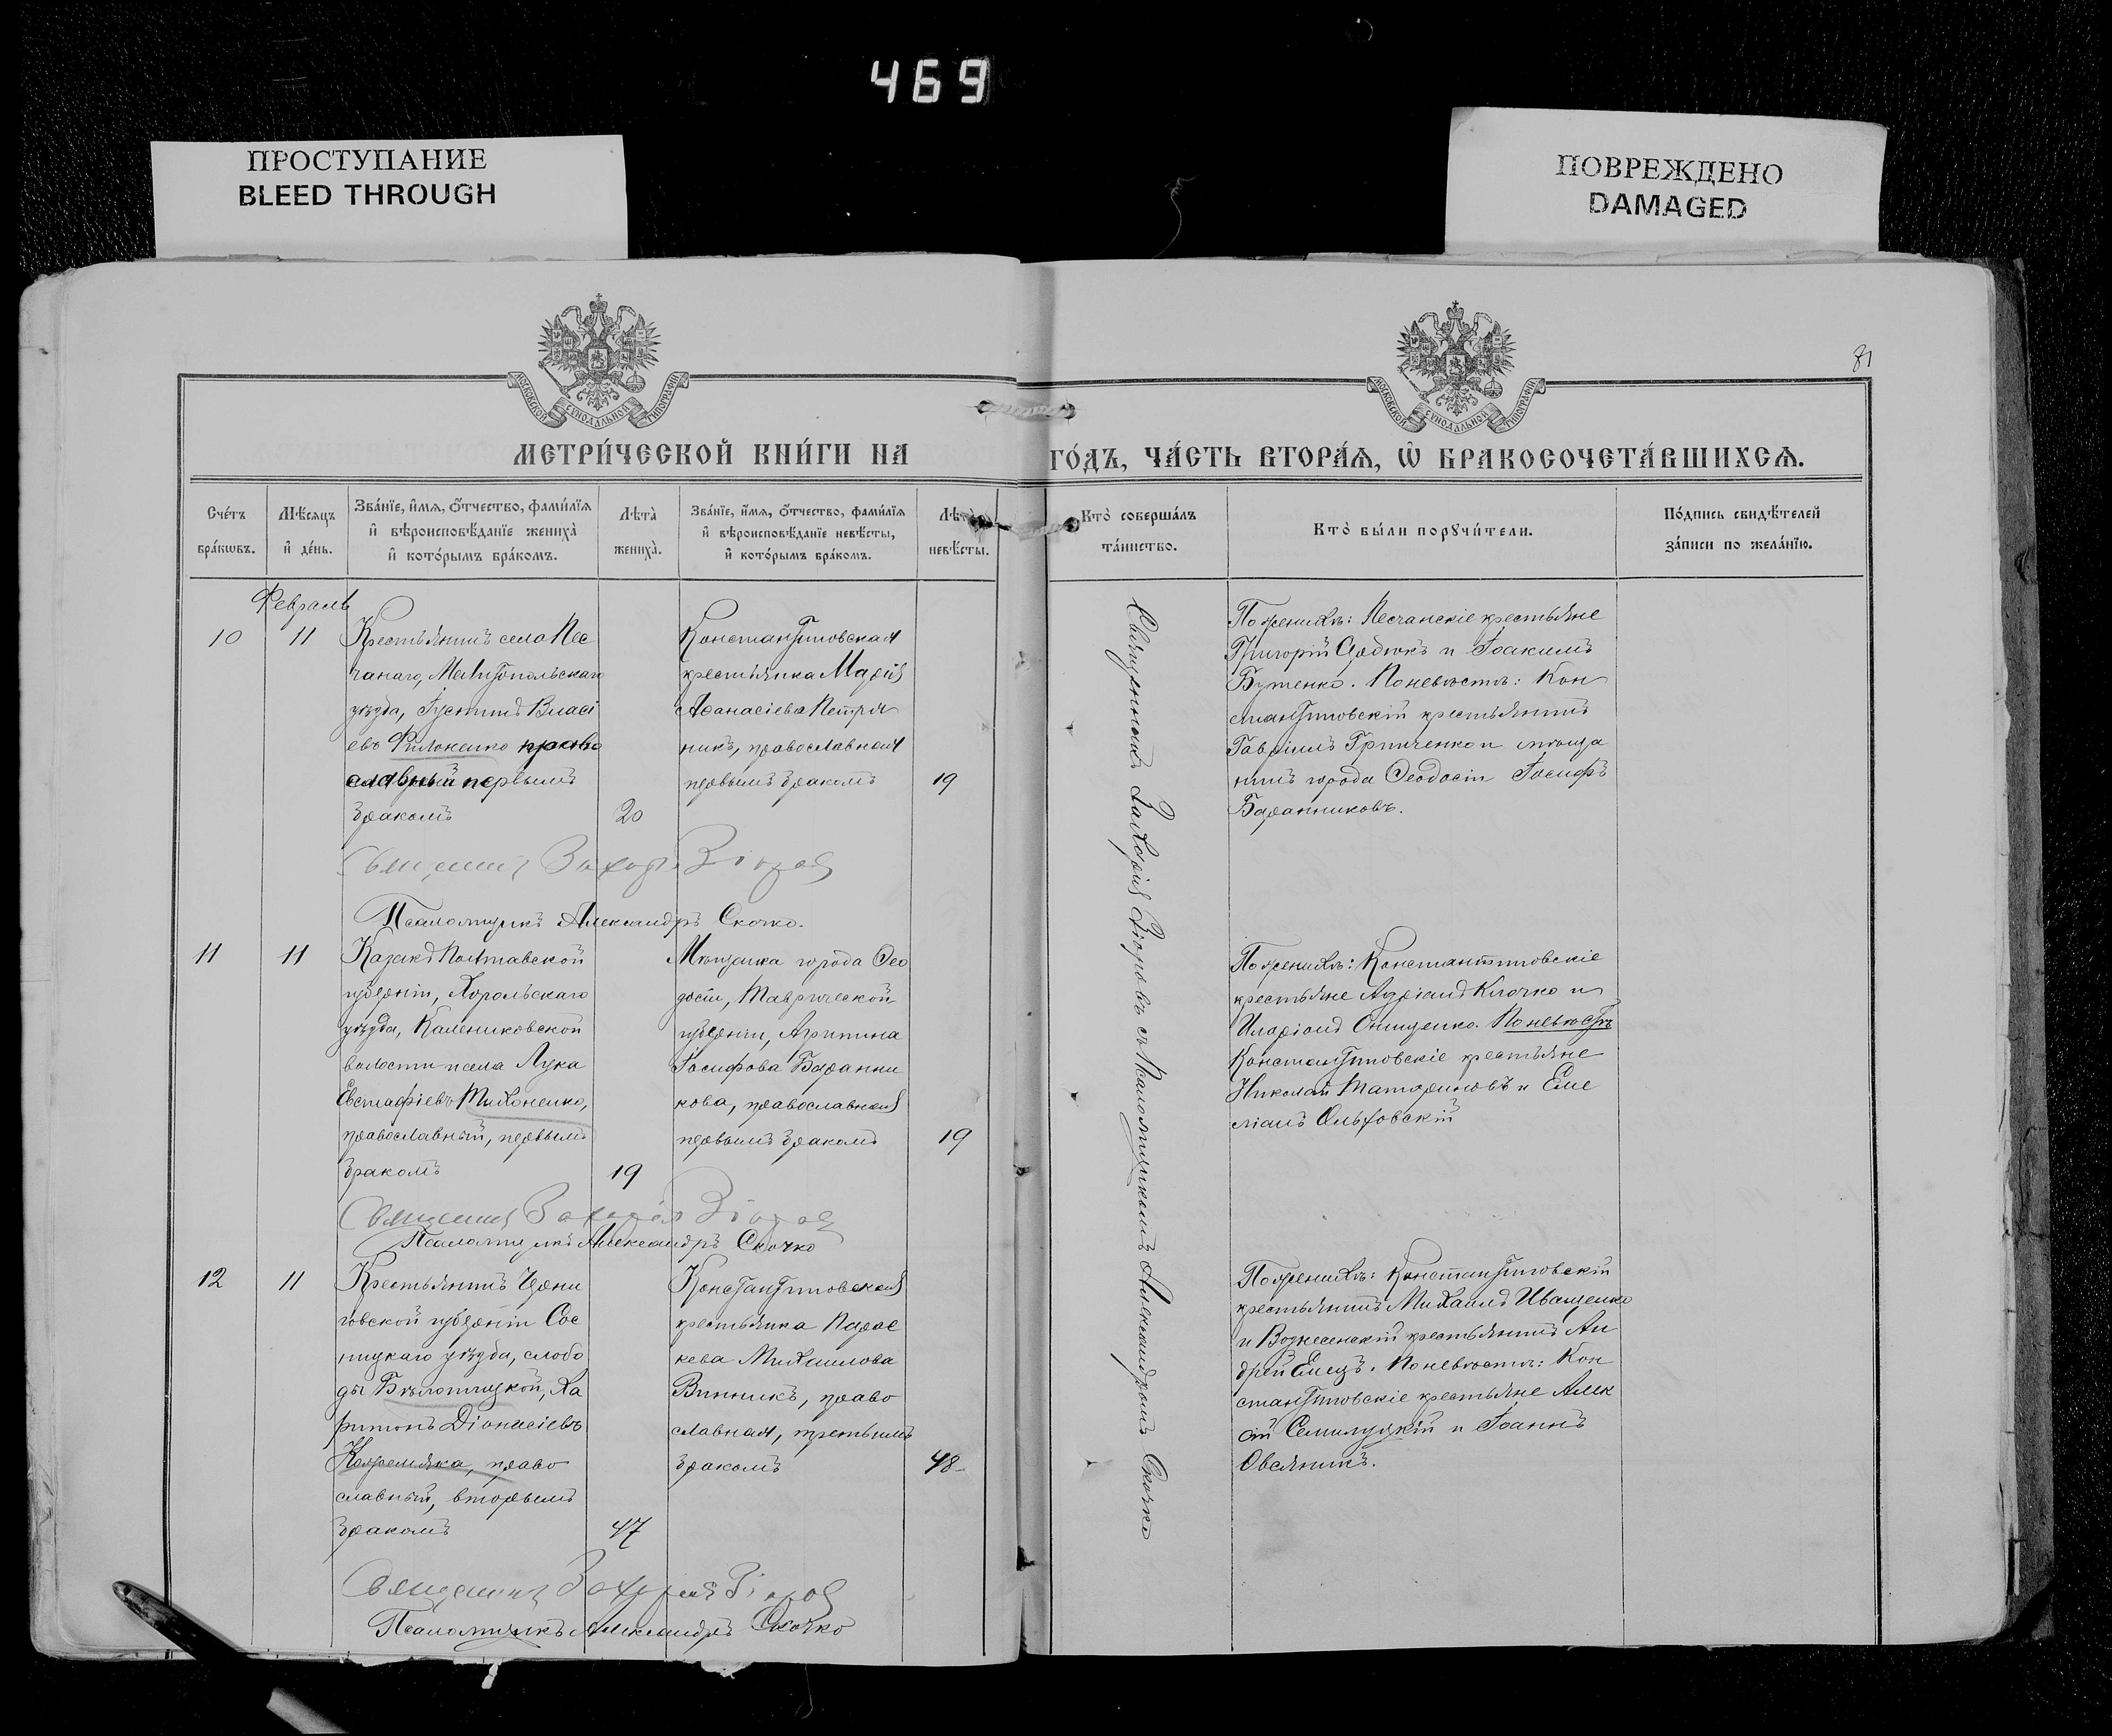 469
ПРОСТУПАНИЕ
BLEED THROUGH
ПОВРЕЖДЕНО
DAMAGED
МОСКОВСКОЙ СѴНОДАЛЬНОЙ ТИПОГРАФІИ
МОСКОВСКОЙ СѴНОДАЛЬНОЙ ТИПОГРАФІИ
81
МЕТРИ́ЧЕСКОЙ КНИ́ГИ НА
ГО́ДЪ, ЧА́СТЬ ВТОРА́Ѧ, Ѽ БРАКОСОЧЕТА́ВШИХСѦ.
Сче́тъ
бра́кѡвъ.
Мѣ́сѧцъ
и҆ де́нь.
Зва́нїе, и҆́мѧ, ѻ҆́тчество, фами́лїѧ
и҆ вѣроисповѣ́данїе жениха̀
и҆ кото́рымъ бра́комъ.
Лѣта̀
жениха̀.
Зва́нїе, и҆́мѧ, ѻ҆́тчество, фами́лїѧ
и҆ вѣроисповѣ́данїе невѣ́сты,
и҆ кото́рымъ бра́комъ.
Лѣта̀
невѣ́сты.
Кто̀ соверша́лъ
та́инство.
Кто̀ бы́ли порꙋчи́тели.
По́дпись свидѣ́телей
за́писи по жела́нїю.
Февраль
10
11
Крестьянинъ села Пес
чанаго, Мелитопольскаго
уѣзда, Іустинъ Власі
евъ Филоненко право
славный первымъ
бракомъ
20
Константиновская
крестьянка Марія
Аѳанасіева Петрин
никъ, православная
первымъ бракомъ
19
По женихѣ: Песчанскіе крестьяне
Григорій Сердюкъ и Іоакимъ
Бутенко. По невѣстѣ: Кон
стантиновскій крестьянинъ
Гавріилъ Гринченко и мѣща
нинъ города Ѳеодосіи Іосифъ
Баранниковъ.
Священникъ Захарія Зіоровъ
Псаломщикъ Александръ Скочко.
11
11
Казакъ Полтавской
губерніи, Хорольскаго
уѣзда, Калениковской
волости и села Лука
Евстафіевъ Тихоненко,
православный, первымъ
бракомъ
19
Мѣщанка города Ѳео
досіи, Таврической
губерніи, Агрипина
Іосифова Баранни
кова, православная
первымъ бракомъ
19
По женихѣ: Константиновскіе
крестьяне Адріанъ Клочко и
Иларіонъ Онищенко. По невѣстѣ
Константиновскіе крестьяне
Николай Татариновъ и Еме
ліанъ Ольховскій
Священникъ Захарія Зіоровъ
Псаломщикъ Александръ Скочко
12
11
Крестьянинъ Черни
говской губерніи Сос
ницкаго уѣзда, слобо
ды Бѣлотицкой, Ха
ритонъ Діонисіевъ
Кожемяка, право
славный, вторымъ
бракомъ
47
Константиновская
крестьянка Парас
кева Михаилова
Винникъ, право
славная, третьимъ
бракомъ
48
По женихѣ: Константиновскій
крестьянинъ Михаилъ Иващенко
и Вознесенскій крестьянинъ Ан
дрей Емецъ. По невѣстѣ: Кон
стантиновскіе крестьяне Алек
сій Семилуцкій и Іоаннъ
Овсяникъ.
Священникъ Захарія Зіоровъ
Псаломщикъ Александръ Скочко
Священникъ Захарія Зіоровъ съ Псаломщикомъ Александромъ Скочко